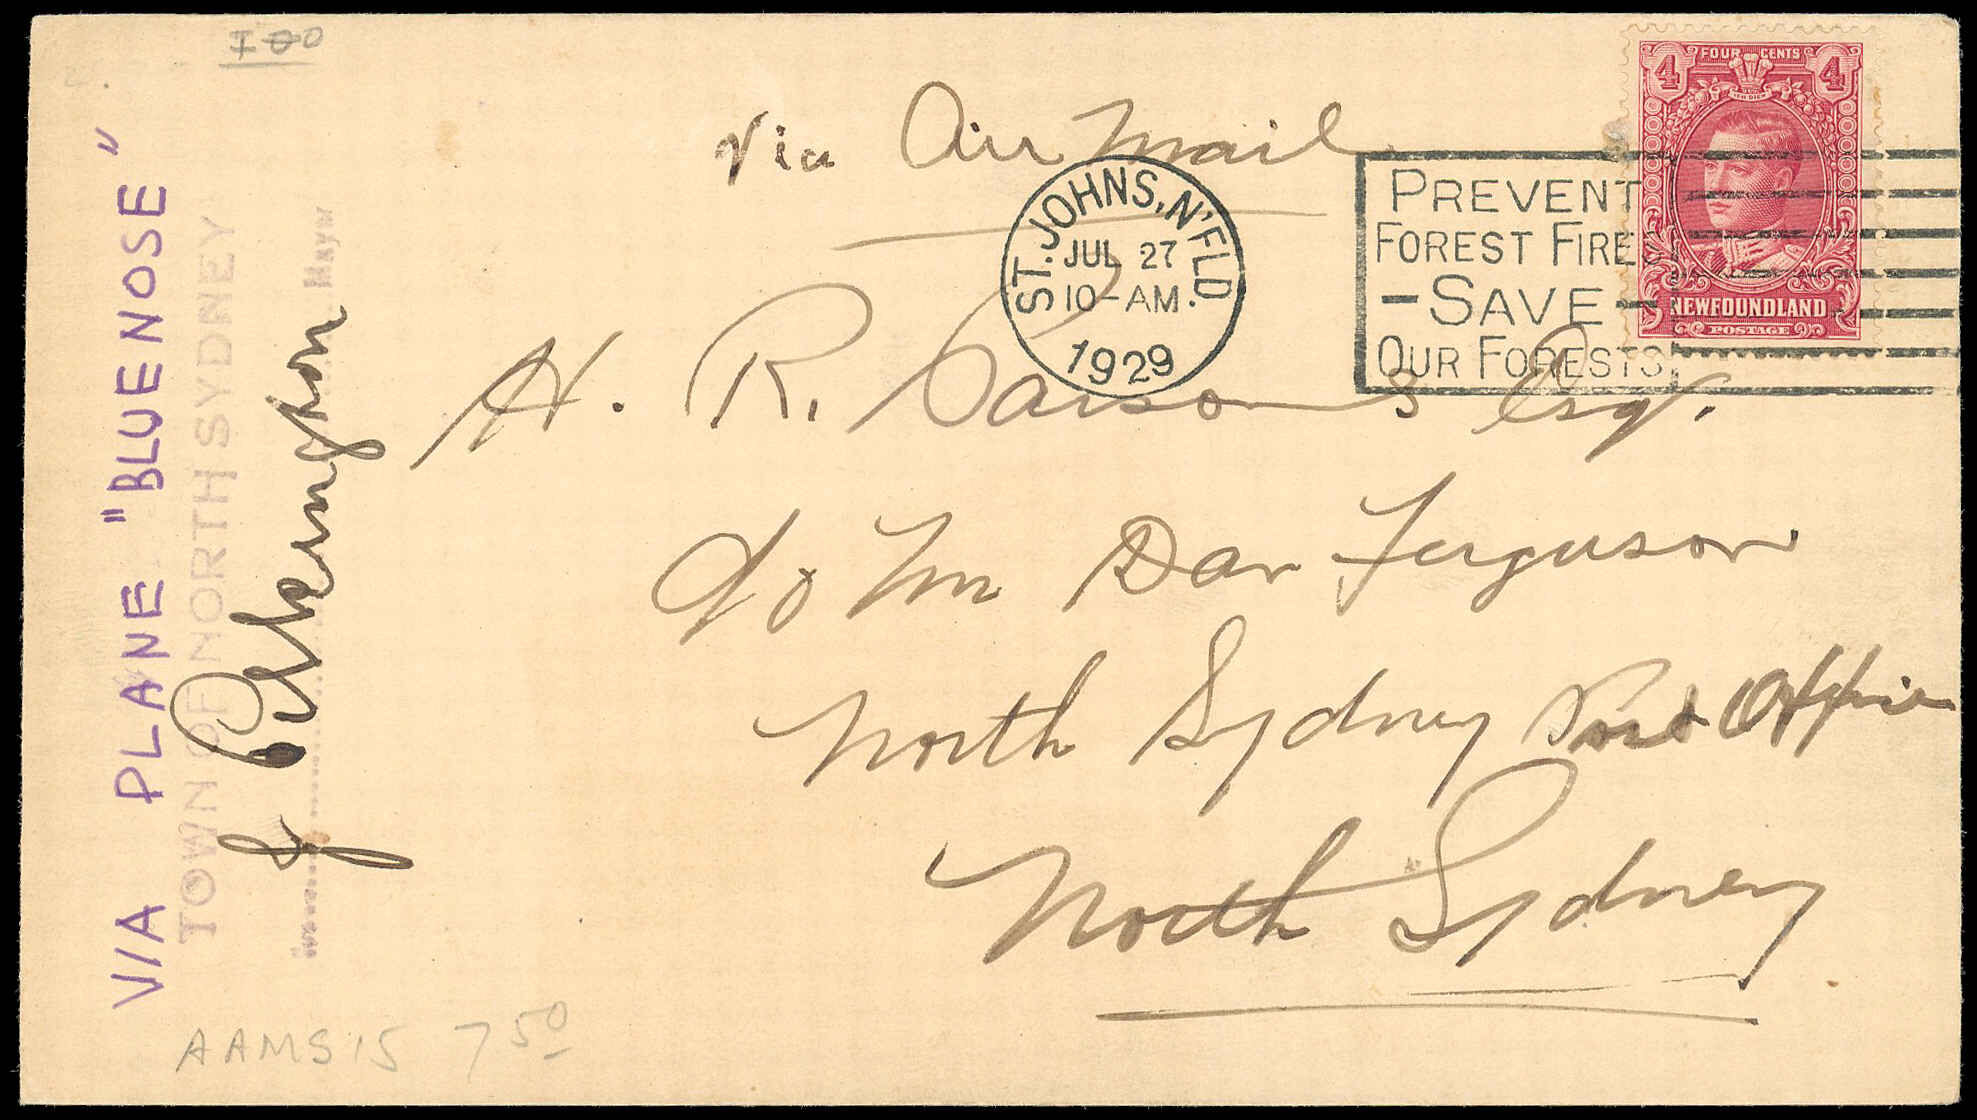 100
via Air Mail
FOUR CENTS
4 4
ICH DIEN
NEWFOUNDLAND
POSTAGE
ST. JOHNS, N'FLD
JUL 27
10-AM.
1929
PREVENT
FOREST FIRES
-SAVE-
OUR FORESTS.
H. R. Parsons Esq.
c/o Mr Dan Ferguson
North Sydney Post Office
North Sydney
VIA PLANE "BLUENOSE"
TOWN OF NORTH SYDNEY
Mayor
AAMS 15 7 50